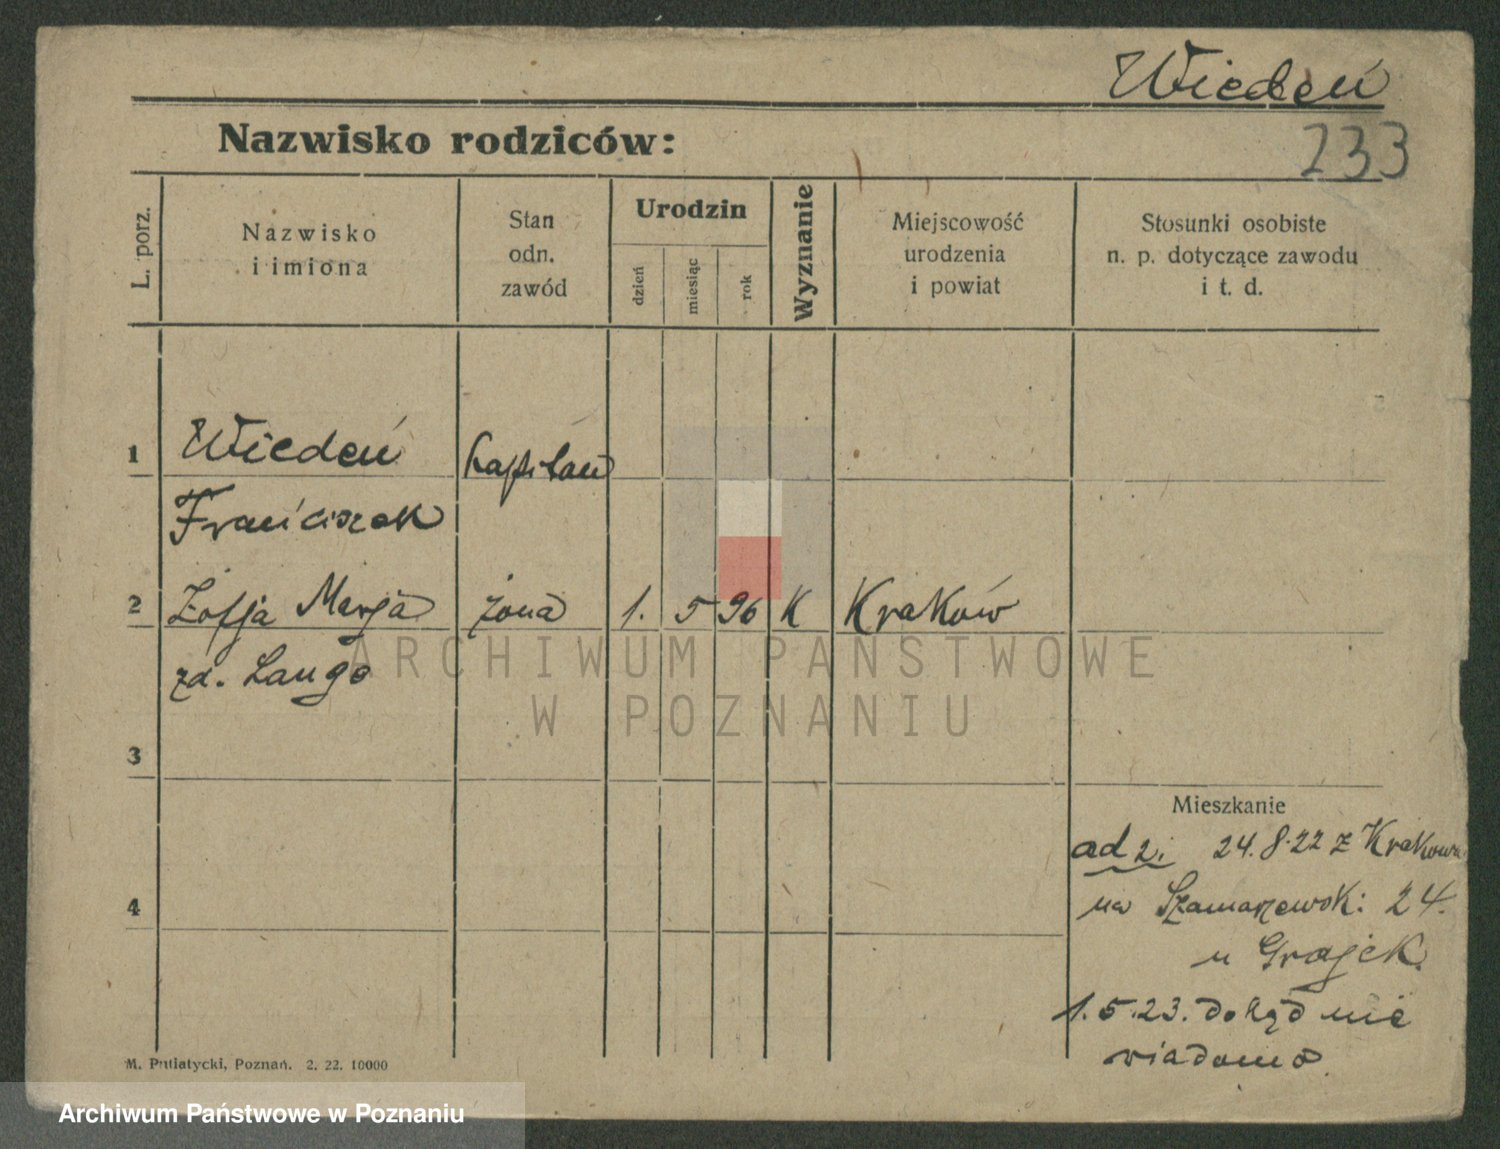 Wiedeń
Nazwisko rodziców:
233
L. porz.
Nazwisko
i imiona
Stan
odn.
zawód
Urodzin
dzień
miesiąc
rok
Wyznanie
Miejscowość
urodzenia
i powiat
Stosunki osobiste
n. p. dotyczące zawodu
i t. d.
1
Wiedeń
kapitan
Franciszek
2
Zofja Marja
żona
1.
5
96
K
Kraków
zd. Lango
ARCHIWUM PAŃSTWOWE
W POZNANIU
3
Mieszkanie
ad 2. 24.8.22 z Krakowa
4
na Szamarzewsk: 24.
u Grajek.
1.5.23. dokąd nie
wiadomo.
M. Putiatycki, Poznań. 2. 22. 10000
Archiwum Państwowe w Poznaniu